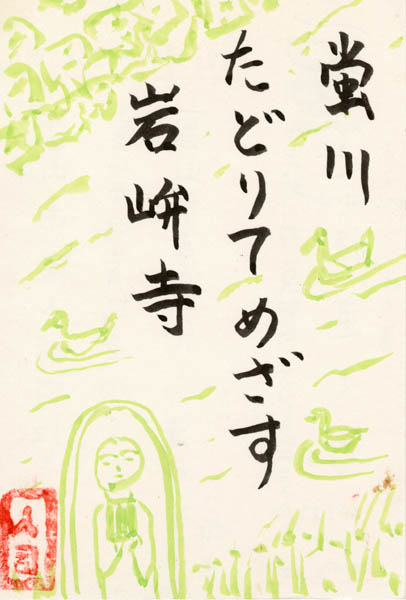 蛍川
たどりてめざす
岩峅寺